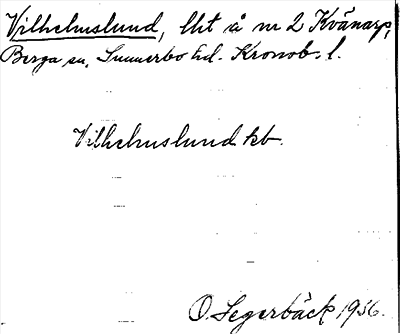 Vilhelmslund, lht å nr 2 Kvänarp,
Berga sn. Sunnerbo hd. Kronob. l.
Vilhelmslund kb.
O. Segerbäck 1936.